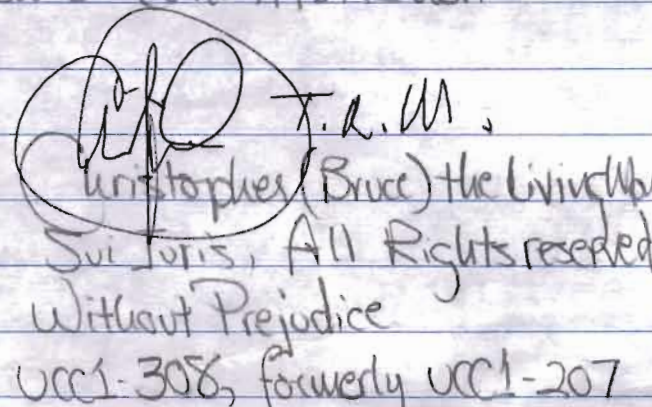 T.R.M.
Christopher (Bruce) the Living
Sui Juris, All Rights reserved
Without Prejudice
UCC1-308, formerly UCC1-207